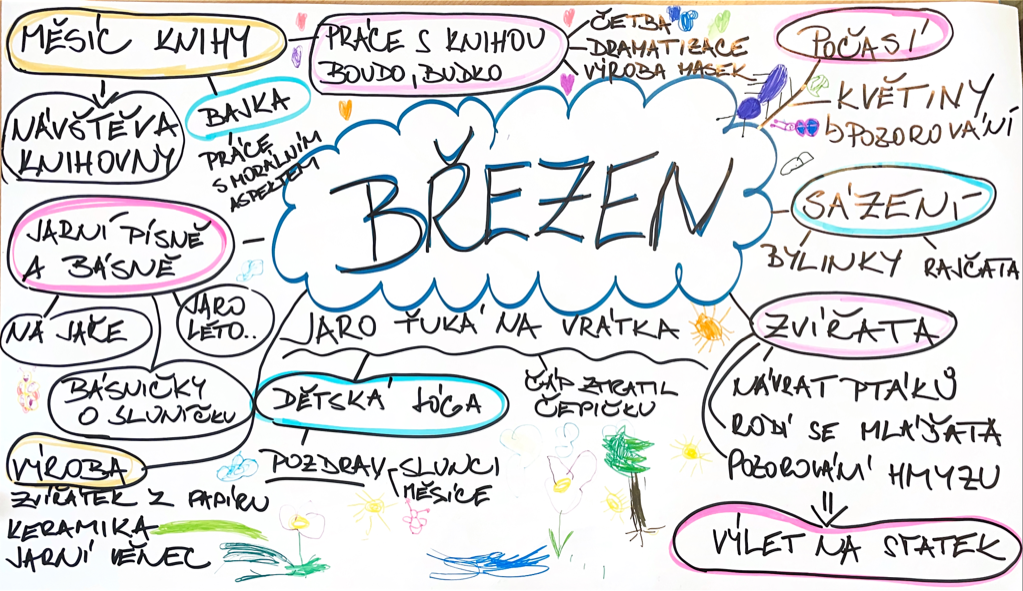 MĚSÍC KNIHY
PRÁCE S KNIHOU
BOUDO, BUDKO
ČETBA
DRAMATIZACE
VÝROBA MASEK
POČASÍ
KVĚTINY
POZOROVÁNÍ
NÁVŠTĚVA
KNIHOVNY
BAJKA
PRÁCE
S MORÁLNÍM
ASPEKTEM
BŘEZEN
SÁZENÍ
BYLINKY
RAJČATA
JARNÍ PÍSNĚ
A BÁSNĚ
NA JAŘE
JARO
LÉTO..
BÁSNIČKY
O SLUNÍČKU
JARO ŤUKÁ NA VRÁTKA
DĚTSKÁ JÓGA
POZDRAV SLUNCI
MĚSÍCE
ČÁP ZTRATIL
ČEPIČKU
ZVÍŘATA
NÁVRAT PTÁKŮ
RODÍ SE MLÁĎATA
POZOROVÁNÍ HMYZU
VÝLET NA STATEK
VÝROBA
ZVÍŘÁTEK Z PAPÍRU
KERAMIKA
JARNÍ VĚNEC